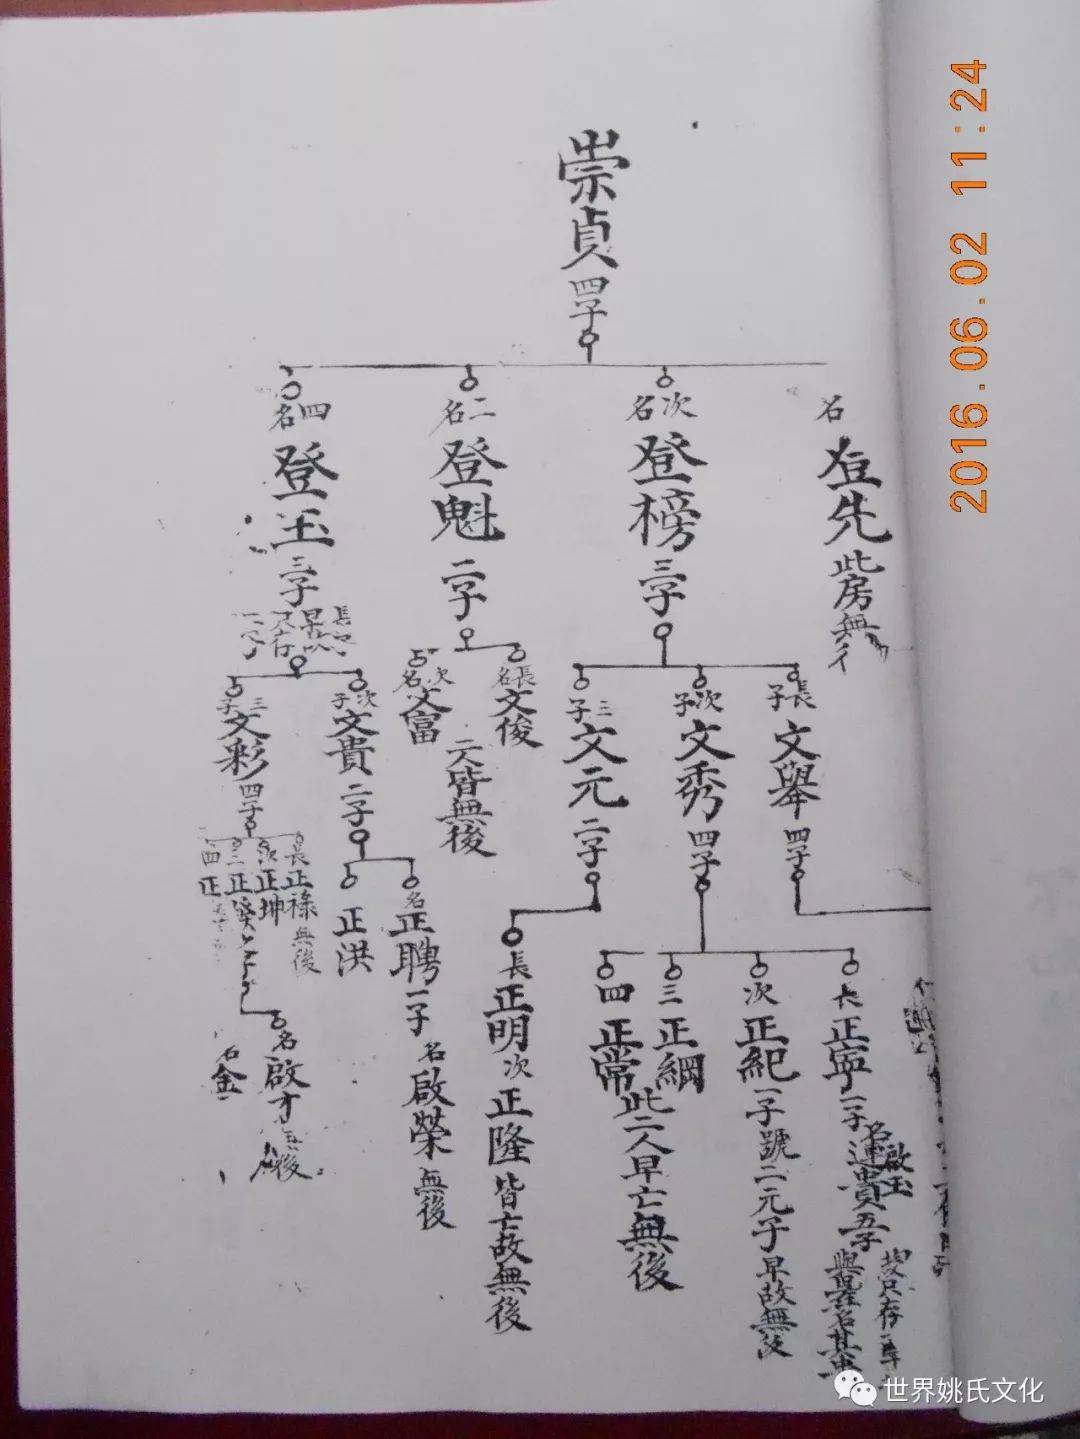 2016.06.02 11:24
崇貞四子
名登先此房無
次名登榜三子
二名登魁二子
四名登玉三子
長子文舉四子
次子文秀四子
三子文元二子
長名文俊
次名文富
二人皆無後
次子文貴二子
三子文彩四子
長正寧一子
名啟玉
運貴五子
故只存
次正紀一子號二元子早故無後
三正綱
四正常
此二人早亡無後
長正明次正隆皆亡故無後
名正聘一子名啟榮無後
正洪
長正祿無後
次正坤
三正
四正
名啟才
後
名金
世界姚氏文化